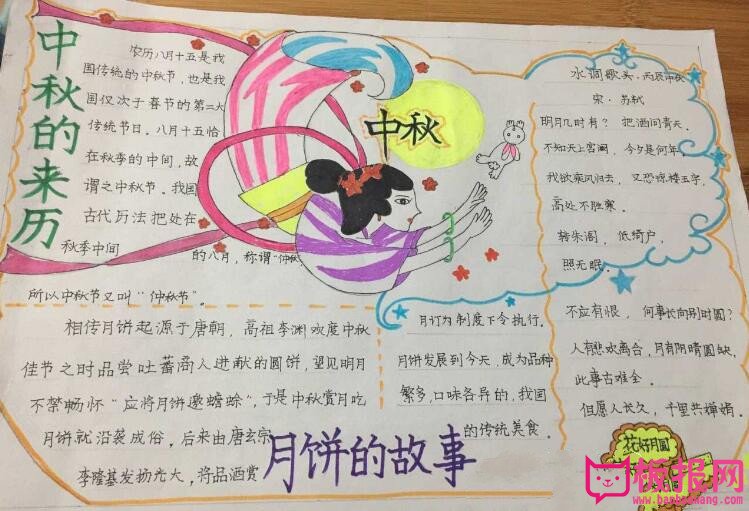 中秋的来历
农历八月十五是我
国传统的中秋节，也是我
国仅次于春节的第二大
传统节日。八月十五恰
在秋季的中间，故
谓之中秋节。我国
古代历法把处在
秋季中间
的八月，称谓"仲秋"
所以中秋节又叫"仲秋节"。
中秋
水调歌头·丙辰中秋
宋·苏轼
明月几时有？把酒问青天。
不知天上宫阙，今夕是何年。
我欲乘风归去，又恐琼楼玉宇，
高处不胜寒。
转朱阁，低绮户，
照无眠。
不应有恨，何事长向别时圆？
人有悲欢离合，月有阴晴圆缺，
此事古难全。
但愿人长久，千里共婵娟。
相传月饼起源于唐朝，高祖李渊欢度中秋
佳节之时品尝吐蕃商人进献的圆饼，望见明月
不禁畅怀"应将月饼邀蟾蜍"，于是中秋赏月吃
月饼就沿袭成俗，后来由唐玄宗
李隆基发扬光大，将品酒赏
月订为制度下令执行。
月饼发展到今天，成为品种
繁多，口味各异的，我国
的传统美食。
月饼的故事
花好月圆
板报网
www.banbaowang.com